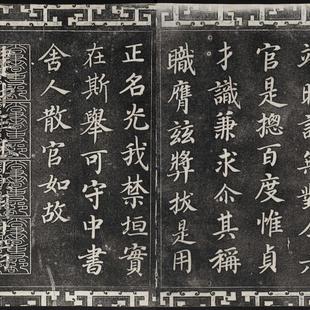 官是揔百度惟貞
才識兼求尒其稱
職膺茲獎拔是用
正名光我禁垣實
在斯舉可守中書
舍人散官如故